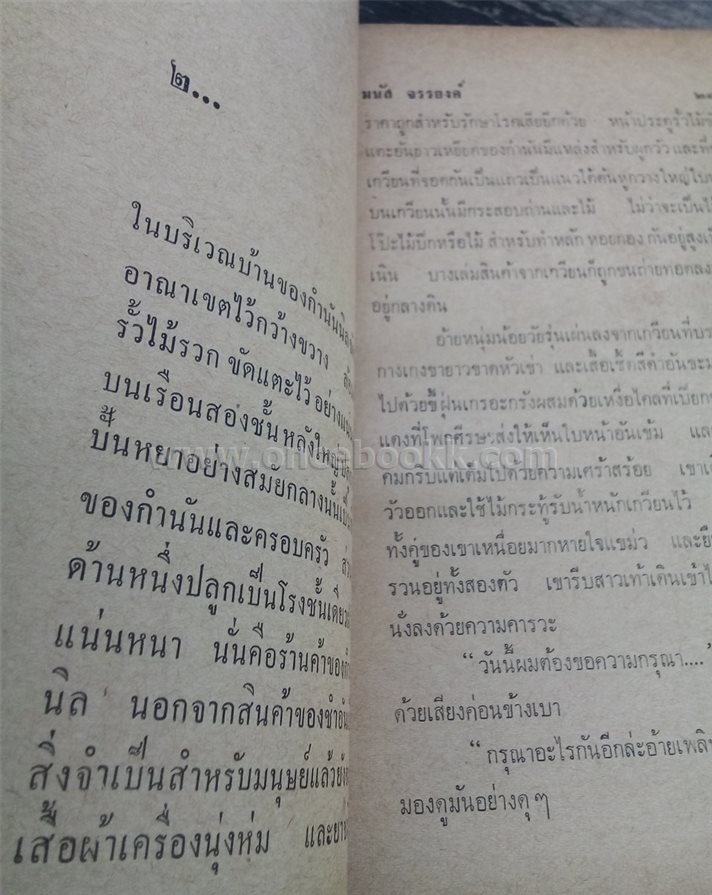 ๒...
ในบริเวณบ้านของกำนันนิล
อาณาเขตไว้กว้างขวาง
รั้วไม้รวก ขัดแตะไว้อย่าง
บนเรือนสองชั้นหลังใหญ่
ปั้นหยาอย่างสมัยกลางนั้น
ของกำนันและครอบครัว
ด้านหนึ่งปลูกเป็นโรงชั้นเดียว
แน่นหนา นั่นคือร้านค้าของ
นิล นอกจากสินค้าของชำ
สิ่งจำเป็นสำหรับมนุษย์แล้ว
เสื้อผ้าเครื่องนุ่งห่ม และ
มนัส จรรยงค์
ราคาถูกสำหรับรักษาโรคเสียอีกด้วย หน้าประตูรั้วไม้
แตะอันยาวเหยียดของกำนันมีแหล่งสำหรับผูกวัว และที่
เกวียนที่จอดกันเป็นแถวเป็นแนวใต้ต้นหูกวางใหญ่ใบ
บนเกวียนนั้นมีกระสอบถ่านและไม้ ไม่ว่าจะเป็นไ
โป๊ะไม้บีกหรือไม้ สำหรับทำหลัก หอยกอง กันอยู่สูง
เนิน บางเล่มสินค้าจากเกวียนก็ถูกขนถ่ายทอดลง
อยู่กลางดิน
อ้ายหนุ่มน้อยวัยรุ่นเผ่นลงจากเกวียนที่
กางเกงขายาวขาดหัวเข่า และเสื้อเชิ้ตสีดำอัน
ไปด้วยขี้ฝุ่นเกรอะกรังผสมด้วยเหงื่อไคลที่เปียก
แดงที่โพกศีรษะส่งให้เห็นใบหน้าอันเข้ม
คมกริบแต่เต็มไปด้วยความเศร้าสร้อย
วัวออกและใช้ไม้กระทู้รับน้ำหนักเกวียนไว้
ทั้งคู่ของเขาเหนื่อยมากหายใจแขม่ว และ
รวนอยู่ทั้งสองตัว เขารีบสาวเท้าเดินเข้า
นั่งลงด้วยความคารวะ
“ วันนี้ผมต้องขอความกรุณา....”
ด้วยเสียงค่อนข้างเบา
“ กรุณาอะไรกันอีกล่ะอ้ายเพลิง
มองดูมันอย่างดุ ๆ